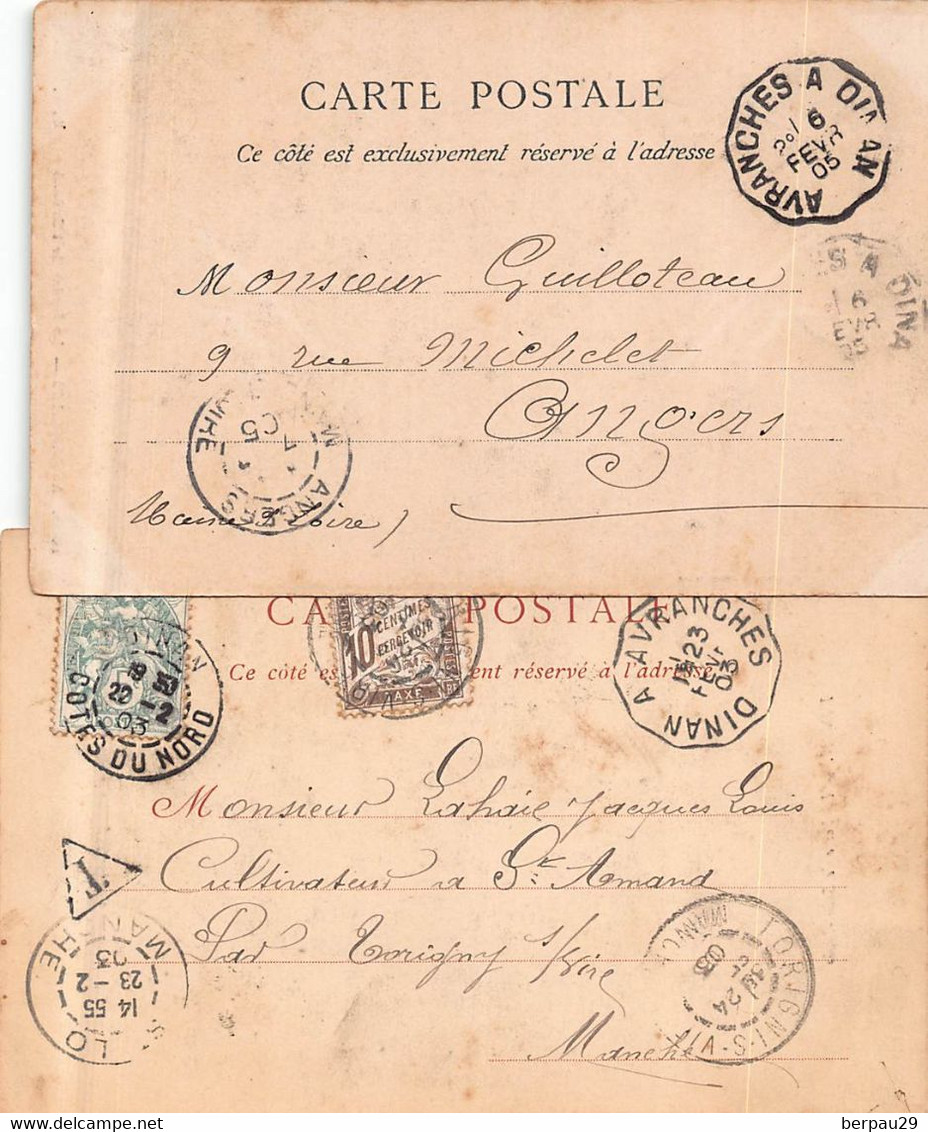 CARTE POSTALE
Ce côté est exclusivement réservé à l'adresse
AVRANCHES A DINAN
6
FEVR
05
ES A DINA
6
EVR
05
Monsieur Guilloteau
9 rue Michelet
Angers
ANGERS
LOIRE
7
05
Maine & Loire)
CA POSTALE
Ce côté es ent réservé à l'adresse
10 CENTIMES
A PERCEVOIR
TAXE
DINAN A AVRANCHES
23
FEVR
03
DINAN
COTES DU NORD
20 -2
03
Monsieur Lahaie Jacques Louis
Cultivateur a St Amand
Par Torigny s/Vire
Manche
T
LO
MANCHE
14 55
23 -2
03
TORIGNI-S-VIRE
MANCHE
24
03
berpau29